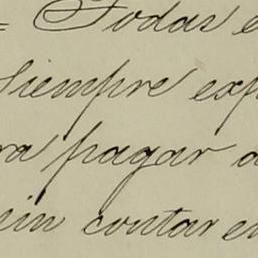 = Todas e
Siempre exp
ra pagar a
sin contar en